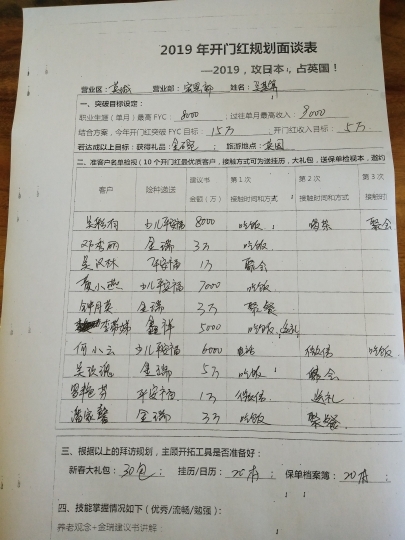 2019 年开门红规划面谈表
—2019，攻日本，占英国！
营业区： 营业部： 姓名：
一、突破目标设定：
职业生涯（单月）最高 FYC： 8000 ；过往单月最高收入： 9000
结合方案，今年开门红突破 FYC 目标： 15万 ；开门红收入目标： 5万
若达成以上目标：获得礼品： 旅游地点：英国
二、准客户名单检视（10 个开门红最优质客户，接触方式可为送挂历，大礼包，送保单检视本，邀约
客户 险种递送 建议书金额（万） 第 1 次接触时间和方式 第 2 次接触时间和方式 第 3 次接触时
少儿平安福 8000 吃饭 喝茶 聚会
邓秀丽 金瑞 3万 吃饭
平安福 1万 聚会
少儿平安福 7000 吃饭
钟月英 金瑞 3万 聚餐
鑫祥 5000 吃饭，送礼
何小云 少儿平安福 6000 电话 微信 吃饭
金瑞 5万 吃饭 聚会
平安福 1万 微信 送礼
金瑞 3万 吃饭 聚餐
三、根据以上的拜访规划，主顾开拓工具是否准备好：
新春大礼包： 30包 ；挂历/日历： 20本 ；保单档案簿： 20本
四、技能掌握情况如下（优秀/流畅/勉强）：
养老观念+金瑞建议书讲解：